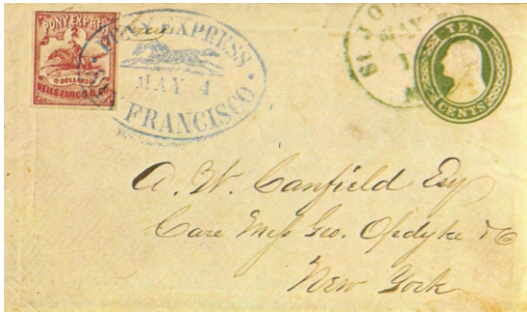 PONY EXPRESS
2
DOLLARS
WELLS, FARGO & CO
PONY EXPRESS
MAY 4
SAN FRANCISCO
ST JO
MAY
TEN
CENTS
A. W. Canfield Esq
Care Mess Geo. Opdyke & Co
New York